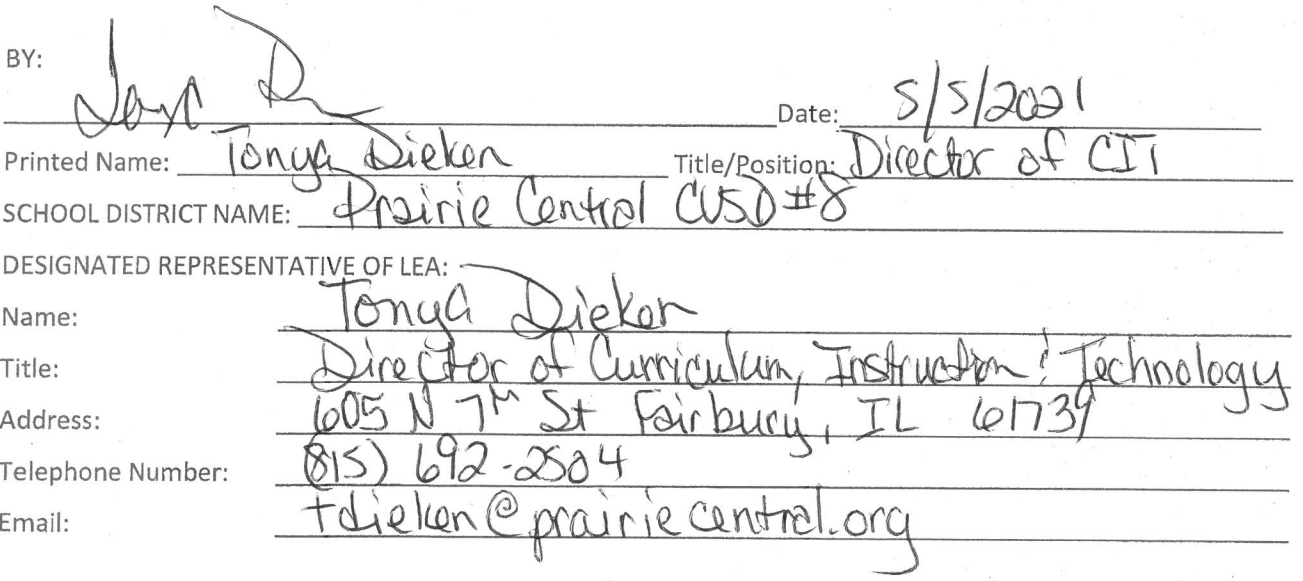 BY:
Date: 5/5/2021
Printed Name: Tonya Dieken Title/Position: Director of CIT
SCHOOL DISTRICT NAME: Prairie Central CUSD #8
DESIGNATED REPRESENTATIVE OF LEA:
Name: Tonya Dieken
Title: Director of Curriculum, Instruction & Technology
Address: 605 N 7th St Fairbury, IL 61739
Telephone Number: (815) 692-2504
Email: tdieken@prairiecentral.org